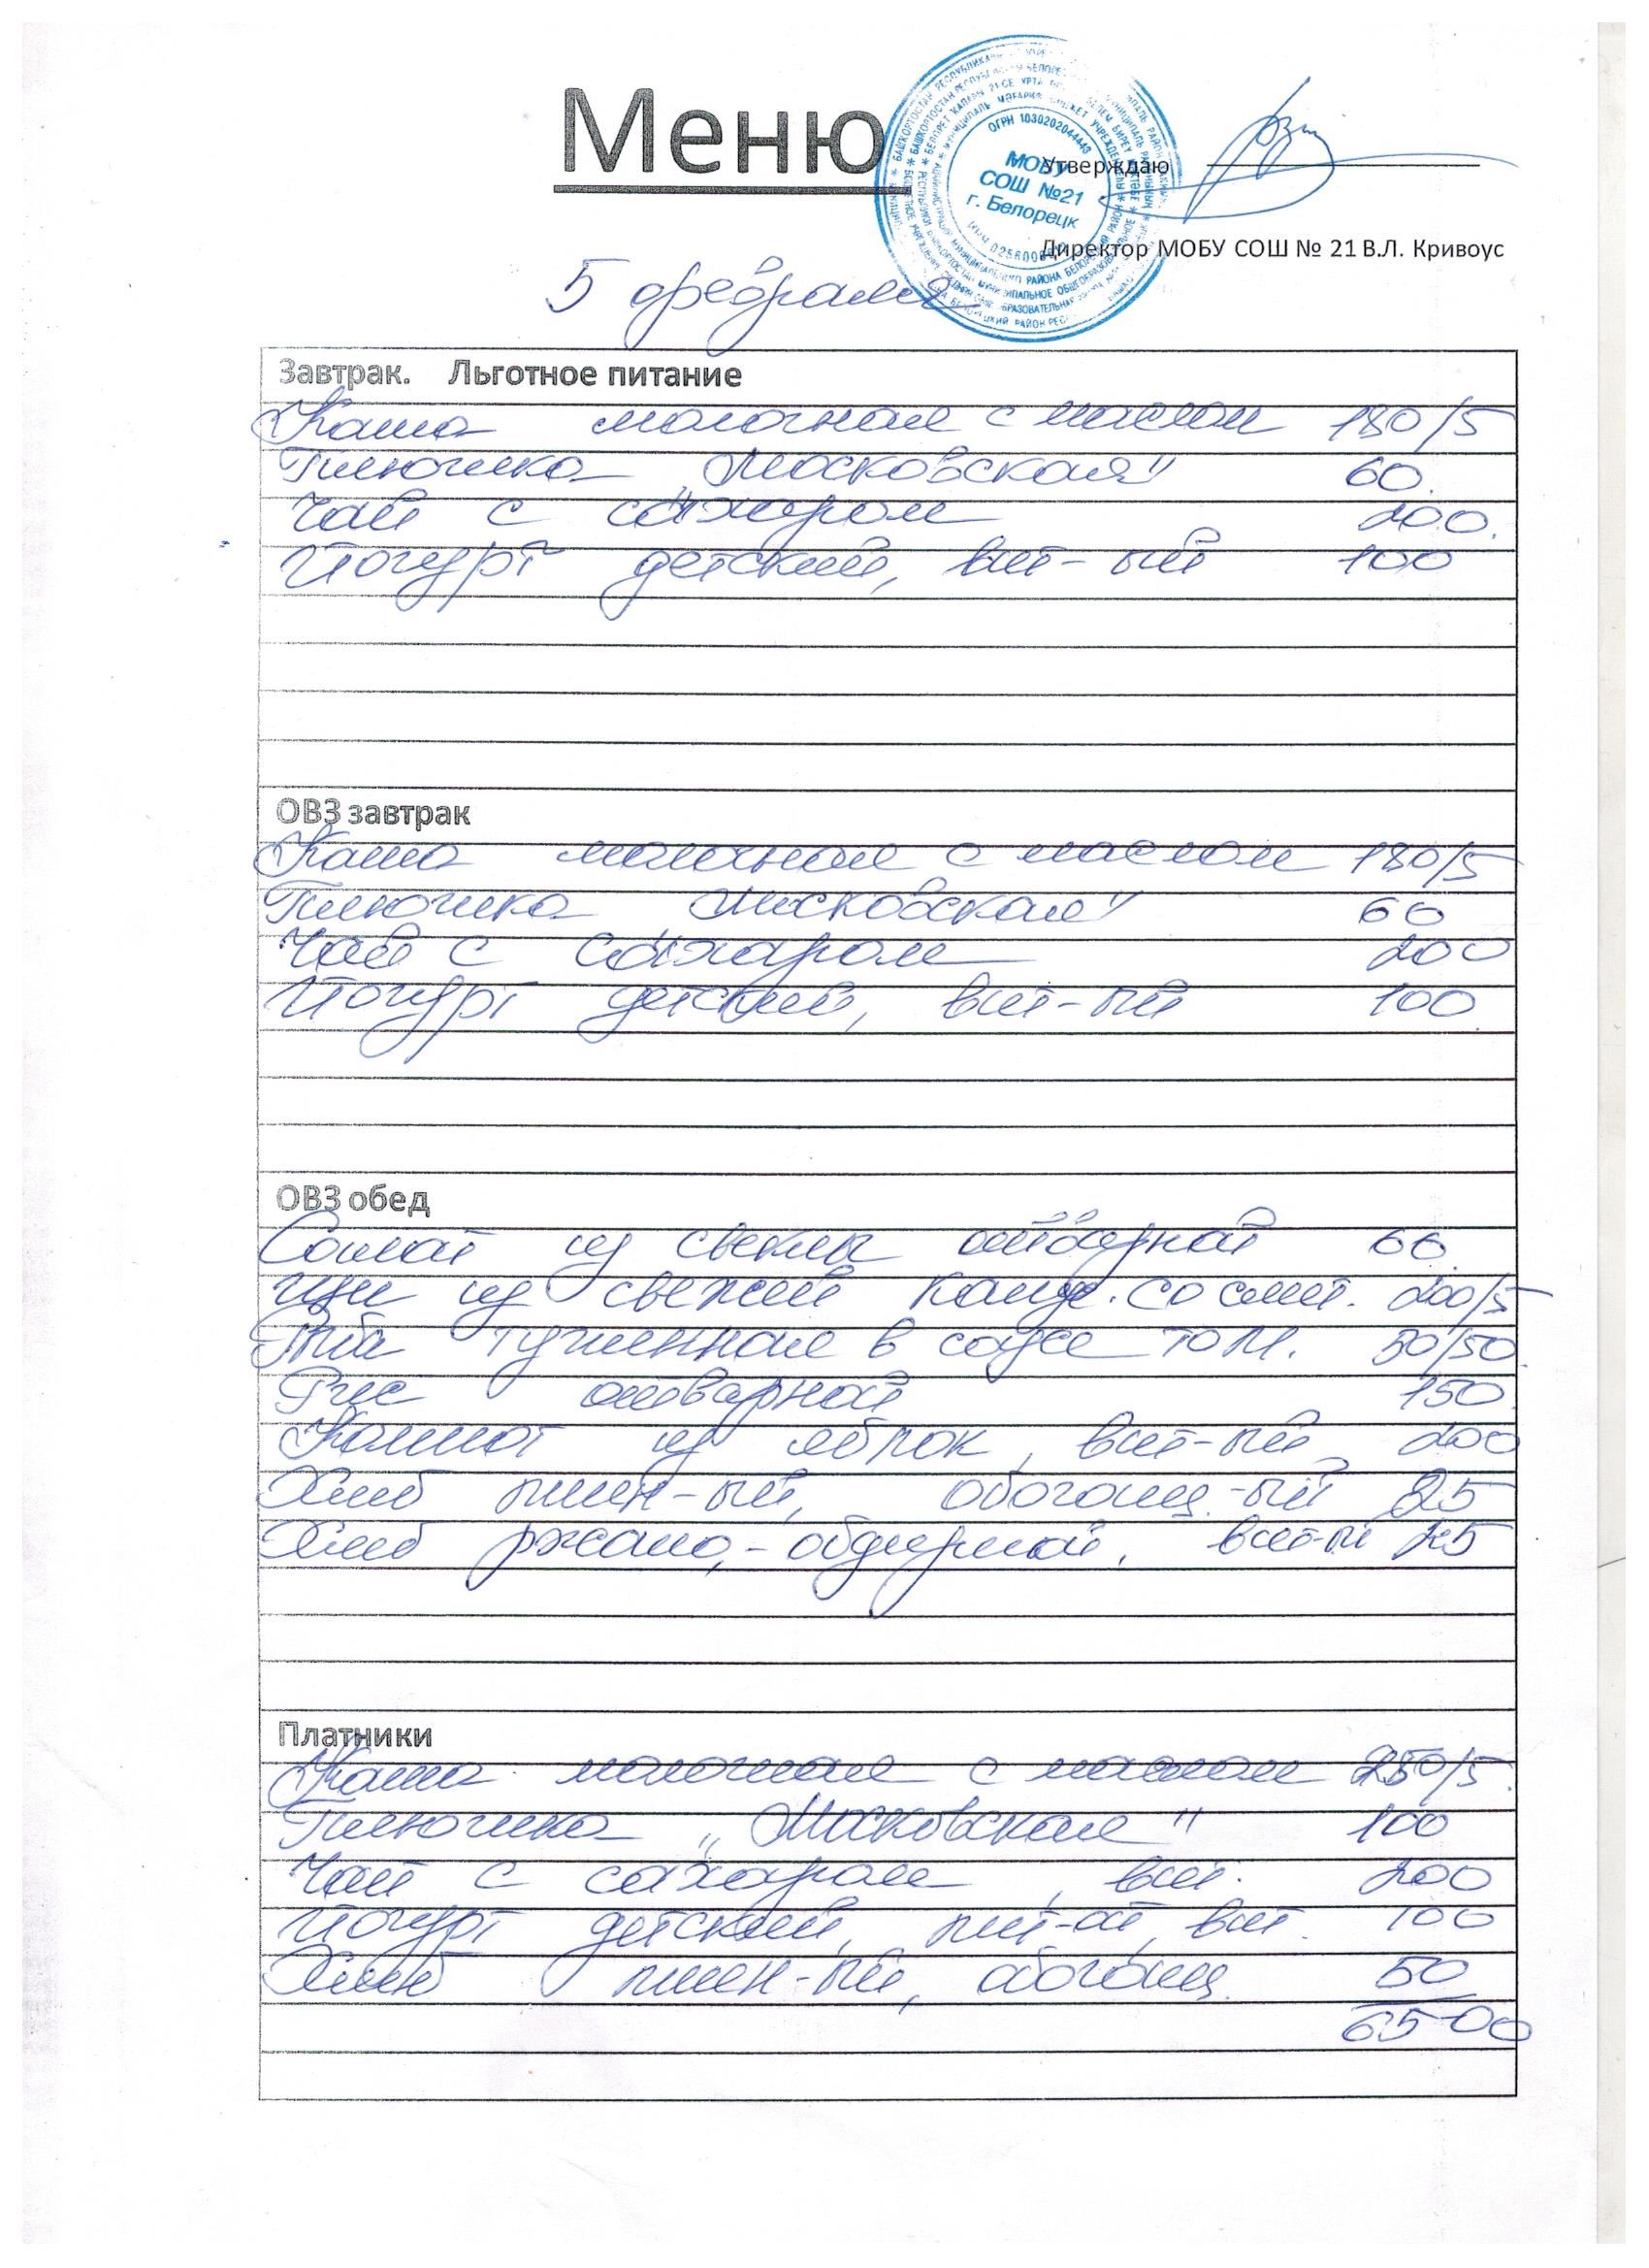 Меню
ОГРН 1030202044443
МОБУ
СОШ №21
г. Белорецк
Утверждаю
Директор МОБУ СОШ № 21 В.Л. Кривоус
5 февраля
Завтрак. Льготное питание
Каша молочная с маслом 180/5
Плюшка „Московская" 60.
Чай с сахаром 200.
Йогурт детский, вит-ый 100
ОВЗ завтрак
Каша молочная с маслом 180/5
Плюшка „Московская" 60
Чай с сахаром 200
Йогурт детский, вит-ый 100
ОВЗ обед
Салат из свеклы отварной 60
Щи из свежей капус. со смет. 200/5
Рыба тушенная в соусе том. 50/50
Рис отварной 150
Компот из яблок, вит-ый 200
Хлеб пшен-ый, обогащ-ый 25
Хлеб ржано-обдирной, вит-й 25
Платники
Каша молочная с маслом 250/5
Плюшка „Московская" 100
Чай с сахаром, вит. 200
Йогурт детский, пит-ой, вит. 100
Хлеб пшен-ый, обогащ. 50
65-00